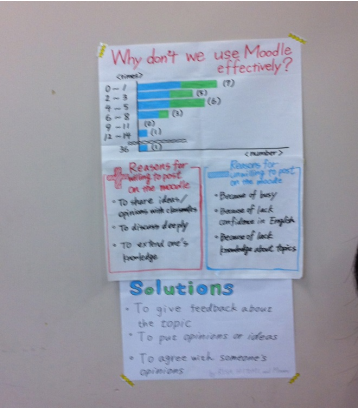 Why don't we use Moodle
effectively?
<times>
0 - 1 (7)
2 - 3
4 - 5 (6)
6 - 8 (3)
9 - 11 (0)
12 - 14 (1)
36 (1)
<number>
Reasons for
willing to post
on the moodle
• To share ideas/
opinions with classmates
• To discuss deeply
• To extend one's
knowledge
Reasons for
unwilling to post
on the moodle
• Because of busy
• Because of lack
confidence in English
• Because of lack
knowledge about topics
Solutions
• To give feedback about
the topic
• To put opinions or ideas
• To agree with someone's
opinions